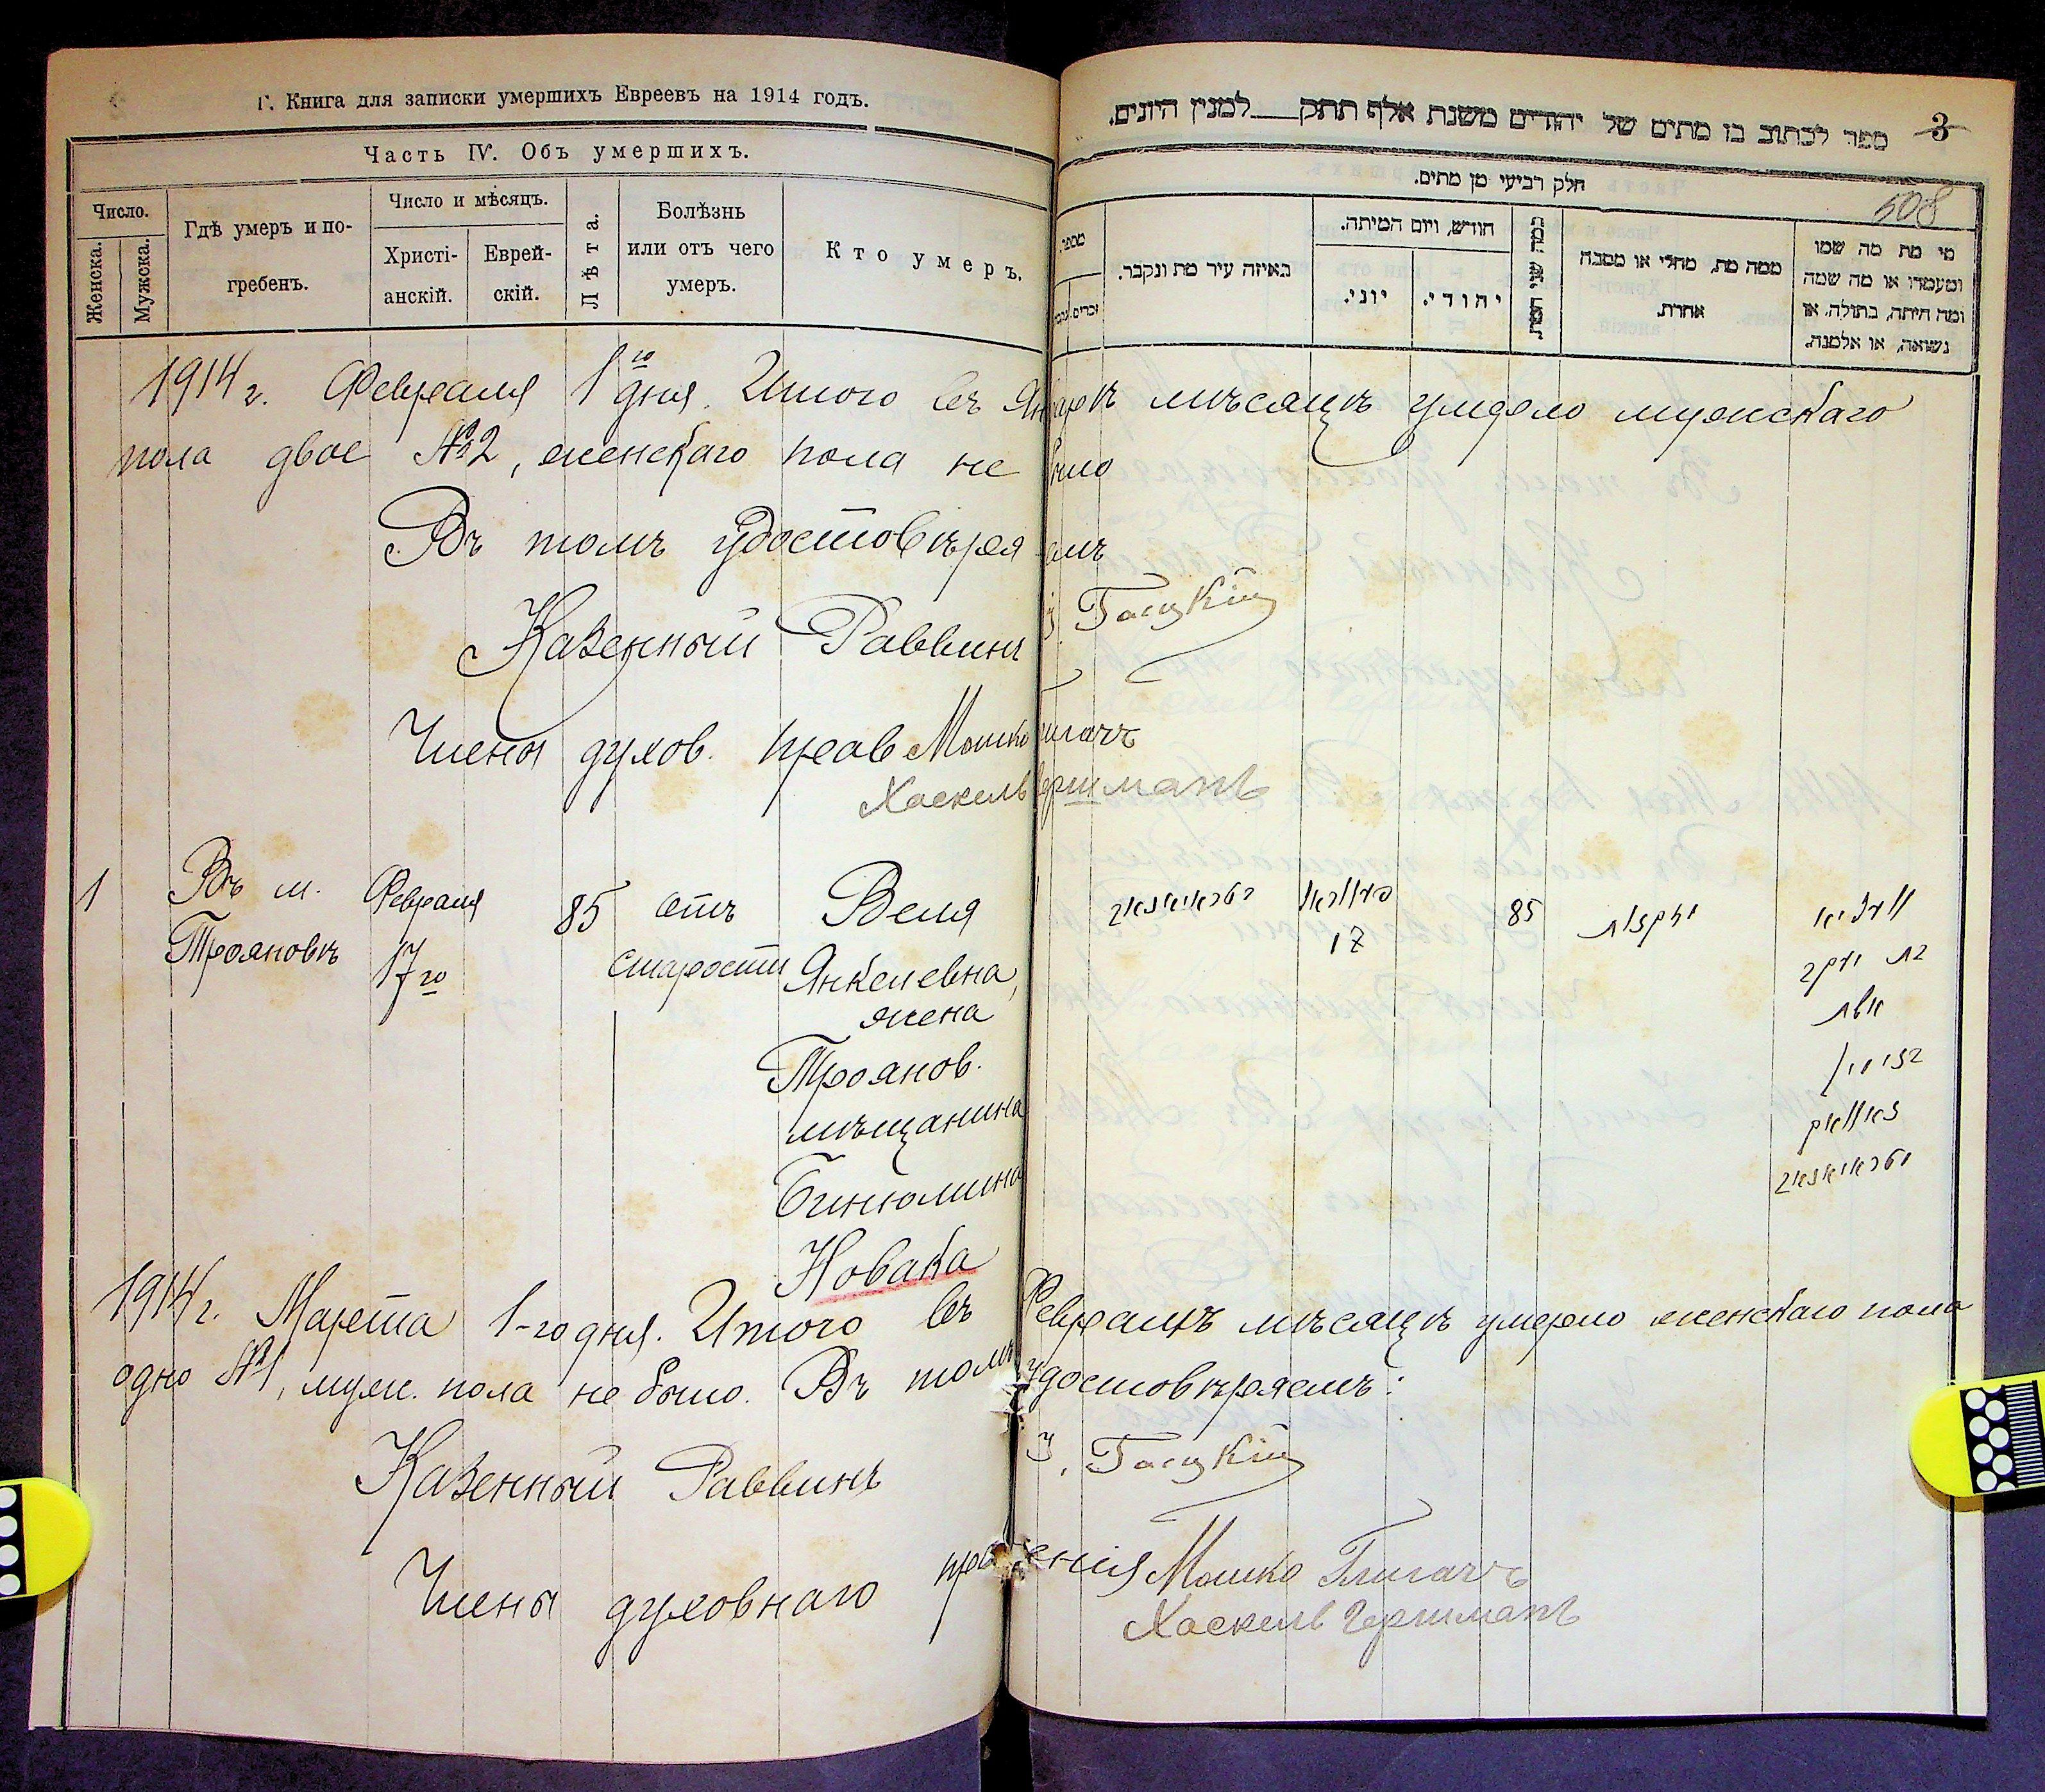 Г. Книга для записки умершихъ Евреевъ на 1914 годъ.
Часть IV. Объ умершихъ.
Число.
Женска.
Мужска.
Гдѣ умеръ и по-
гребенъ.
Число и мѣсяцъ.
Христі-
анскій.
Еврей-
скій.
Лѣта.
Болѣзнь
или отъ чего
умеръ.
Кто умеръ.
ספר לכתוב בו מתים של יהודים משנת אלף תתק למנין היונים.
3
508
חלק רביעי מן מתים.
מספר
זכרים.
באיזה עיר מת ונקבר.
חודש, ויום המיתה.
יוני.
יהודי.
ממה מת, מחלי או מסבה
אחרת.
מי מת מה שמו
ומעמדו או מה שמה
ומה היתה, בתולה, או
נשואה, או אלמנה.
1914 г. Февраля 1го дня. Итого въ Январѣ мѣсяцѣ умерло мужскаго
пола двое №2, женскаго пола не было
Въ томъ удостовѣряемъ
Казенный Раввинъ
Члены духов. прав Мошко
Хаскель Гершманъ
1
Въ м.
Трояновкѣ
Февраля
17го
85
отъ
старости
Веля
Янкелевна,
жена
Троянов.
мѣщанина
Бинюмина
Новака
טראיאנאוו
פעווראל
17
85
זקנות
וועליא
בת יעקב
אשת
בנימין
נאוואק
טראיאנאוו
1914 г. Марта 1-го дня. Итого въ Февралѣ мѣсяцѣ умерло женскаго пола
одно №1, муж. пола не было. Въ томъ удостовѣряемъ:
Казенный Раввинъ
Члены духовнаго правленія Мошко
Хаскель Гершманъ